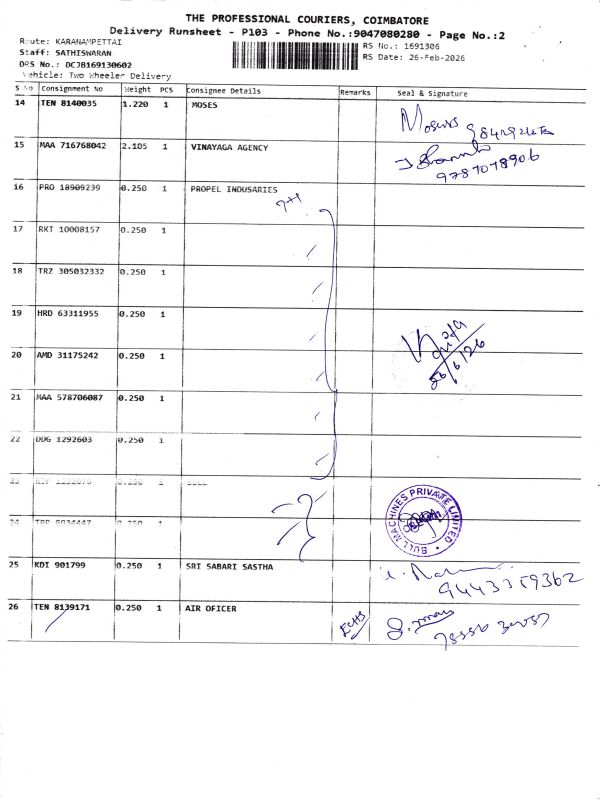 THE PROFESSIONAL COURIERS, COIMBATORE
Delivery Runsheet - P103 - Phone No.:9047080280 - Page No.:2
Route: KARANAMPETTAI
Staff: SATHISWARAN
DRS No.: DCJB169130602
Vehicle: Two Wheeler Delivery
RS No.: 1691306
RS Date: 26-Feb-2026
S No Consignment No Weight PCS Consignee Details Remarks Seal & Signature
14 TEN 8140035 1.220 1 MOSES
Moses
15 MAA 716768042 2.105 1 VINAYAGA AGENCY
9787078906
16 PRO 18909239 0.250 1 PROPEL INDUSARIES
7+1
17 RKT 10008157 0.250 1
18 TRZ 305032332 0.250 1
19 HRD 63311955 0.250 1
20 AMD 31175242 0.250 1
21 MAA 578706087 0.250 1
22 DDG 1292603 0.250 1
23 0.250 1 BULL
24 TRP 8034447 0.250 1
BULL MACHINES PRIVATE LIMITED
25 KDI 901799 0.250 1 SRI SABARI SASTHA
9443359362
26 TEN 8139171 0.250 1 AIR OFICER
ECHS